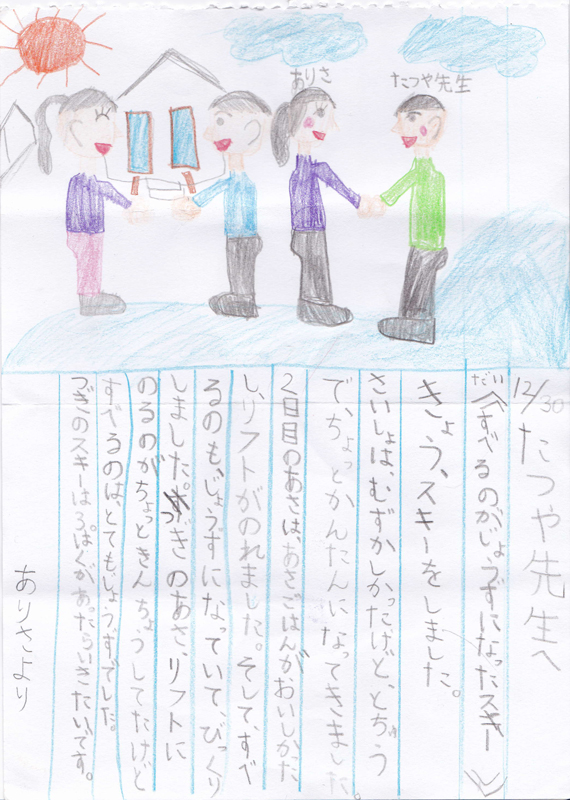 ありさ
たつや先生
12/30
たつや先生へ
だい《すべるのが、じょうずになったスキー》
きょう、スキーをしました。
さいしょは、むずかしかったけど、とちゅう
で、ちょっとかんたんになってきました。
2日目のあさは、あさごはんがおいしかった
し、リフトがのれました。そして、すべ
るのも、じょうずになっていて、びっくり
しました。つぎのあさ、リフトに
のるのがちょっときんちょうしてたけど
すべるのは、とてもじょうずでした。
つぎのスキーはろっぱくがあったらいきたいです。
ありさより